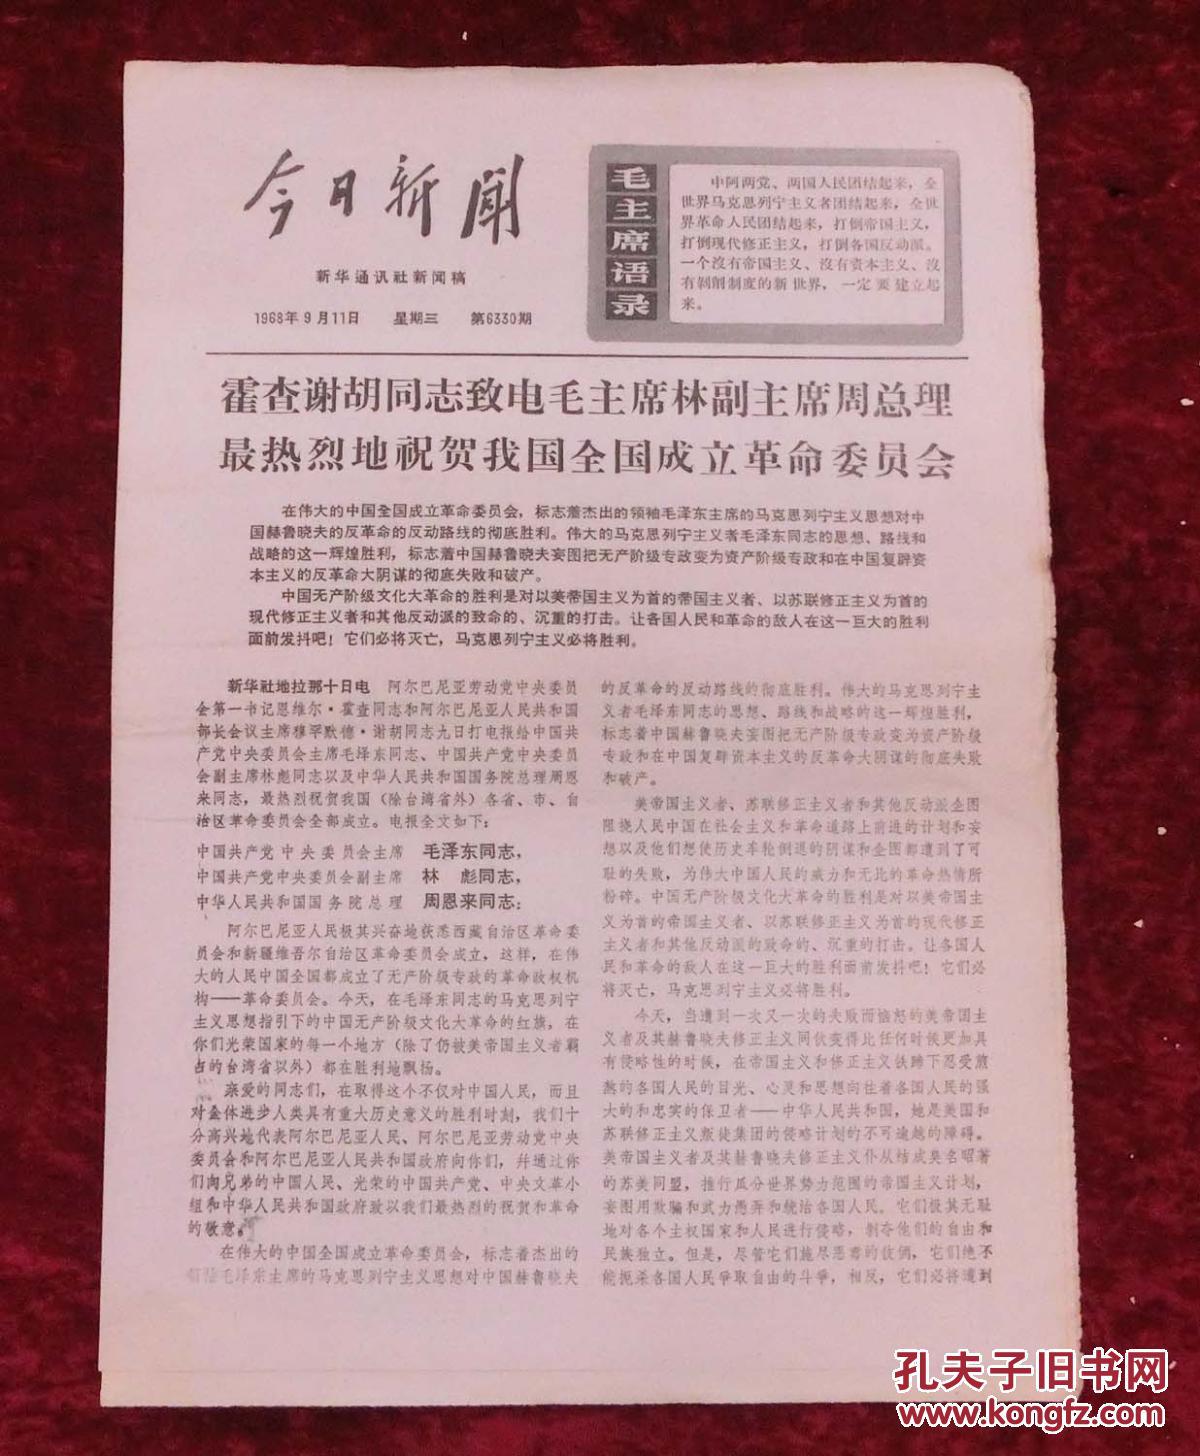 今日新闻
新华通讯社新闻稿
1968年9月11日 星期三 第6330期
毛主席语录
中阿两党、两国人民团结起来，全
世界马克思列宁主义者团结起来，全世
界革命人民团结起来，打倒帝国主义，
打倒现代修正主义，打倒各国反动派。
一个没有帝国主义、没有资本主义、没
有剥削制度的新世界，一定要建立起
来。
霍查谢胡同志致电毛主席林副主席周总理
最热烈地祝贺我国全国成立革命委员会
在伟大的中国全国成立革命委员会，标志着杰出的领袖毛泽东主席的马克思列宁主义思想对中
国赫鲁晓夫的反革命的反动路线的彻底胜利。伟大的马克思列宁主义者毛泽东同志的思想、路线和
战略的这一辉煌胜利，标志着中国赫鲁晓夫妄图把无产阶级专政变为资产阶级专政和在中国复辟资
本主义的反革命大阴谋的彻底失败和破产。
中国无产阶级文化大革命的胜利是对以美帝国主义为首的帝国主义者、以苏联修正主义为首的
现代修正主义者和其他反动派的致命的、沉重的打击。让各国人民和革命的敌人在这一巨大的胜利
面前发抖吧！它们必将灭亡，马克思列宁主义必将胜利。
新华社地拉那十日电 阿尔巴尼亚劳动党中央委员
会第一书记恩维尔·霍查同志和阿尔巴尼亚人民共和国
部长会议主席穆罕默德·谢胡同志九日打电报给中国共
产党中央委员会主席毛泽东同志、中国共产党中央委员
会副主席林彪同志以及中华人民共和国国务院总理周恩
来同志，最热烈祝贺我国（除台湾省外）各省、市、自
治区革命委员会全部成立。电报全文如下：
中国共产党中央委员会主席 毛泽东同志，
中国共产党中央委员会副主席 林 彪同志，
中华人民共和国国务院总理 周恩来同志：
阿尔巴尼亚人民极其兴奋地获悉西藏自治区革命委
员会和新疆维吾尔自治区革命委员会成立，这样，在伟
大的人民中国全国都成立了无产阶级专政的革命政权机
构——革命委员会。今天，在毛泽东同志的马克思列宁
主义思想指引下的中国无产阶级文化大革命的红旗，在
你们光荣国家的每一个地方（除了仍被美帝国主义者霸
占的台湾省以外）都在胜利地飘扬。
亲爱的同志们，在取得这个不仅对中国人民，而且
对全体进步人类具有重大历史意义的胜利时刻，我们十
分高兴地代表阿尔巴尼亚人民、阿尔巴尼亚劳动党中央
委员会和阿尔巴尼亚人民共和国政府向你们，并通过你
们向兄弟的中国人民、光荣的中国共产党、中央文革小
组和中华人民共和国政府致以我们最热烈的祝贺和革命
的敬意。
在伟大的中国全国成立革命委员会，标志着杰出的
领袖毛泽东主席的马克思列宁主义思想对中国赫鲁晓夫
的反革命的反动路线的彻底胜利。伟大的马克思列宁主
义者毛泽东同志的思想、路线和战略的这一辉煌胜利，
标志着中国赫鲁晓夫妄图把无产阶级专政变为资产阶级
专政和在中国复辟资本主义的反革命大阴谋的彻底失败
和破产。
美帝国主义者、苏联修正主义者和其他反动派企图
阻挠人民中国在社会主义和革命道路上前进的计划和妄
想以及他们想使历史车轮倒退的阴谋和企图都遭到了可
耻的失败，为伟大中国人民的威力和无比的革命热情所
粉碎。中国无产阶级文化大革命的胜利是对以美帝国主
义为首的帝国主义者、以苏联修正主义为首的现代修正
主义者和其他反动派的致命的、沉重的打击。让各国人
民和革命的敌人在这一巨大的胜利面前发抖吧！它们必
将灭亡，马克思列宁主义必将胜利。
今天，当遭到一次又一次的失败而恼怒的美帝国主
义者及其赫鲁晓夫修正主义同伙变得比任何时候更加具
有侵略性的时候，在帝国主义和修正主义铁蹄下忍受煎
熬的各国人民的目光、心灵和思想向往着各国人民的强
大的和忠实的保卫者——中华人民共和国，她是美国和
苏联修正主义叛徒集团的侵略计划的不可逾越的障碍。
美帝国主义者及其赫鲁晓夫修正主义仆从结成臭名昭著
的苏美同盟，推行瓜分世界势力范围的帝国主义计划，
妄图用欺骗和武力愚弄和统治各国人民。它们极其无耻
地对各个主权国家和人民进行侵略，剥夺他们的自由和
民族独立。但是，尽管它们施尽恶毒的伎俩，它们绝不
能扼杀各国人民争取自由的斗争，相反，它们必将遭到
孔夫子旧书网
www.kongfz.com